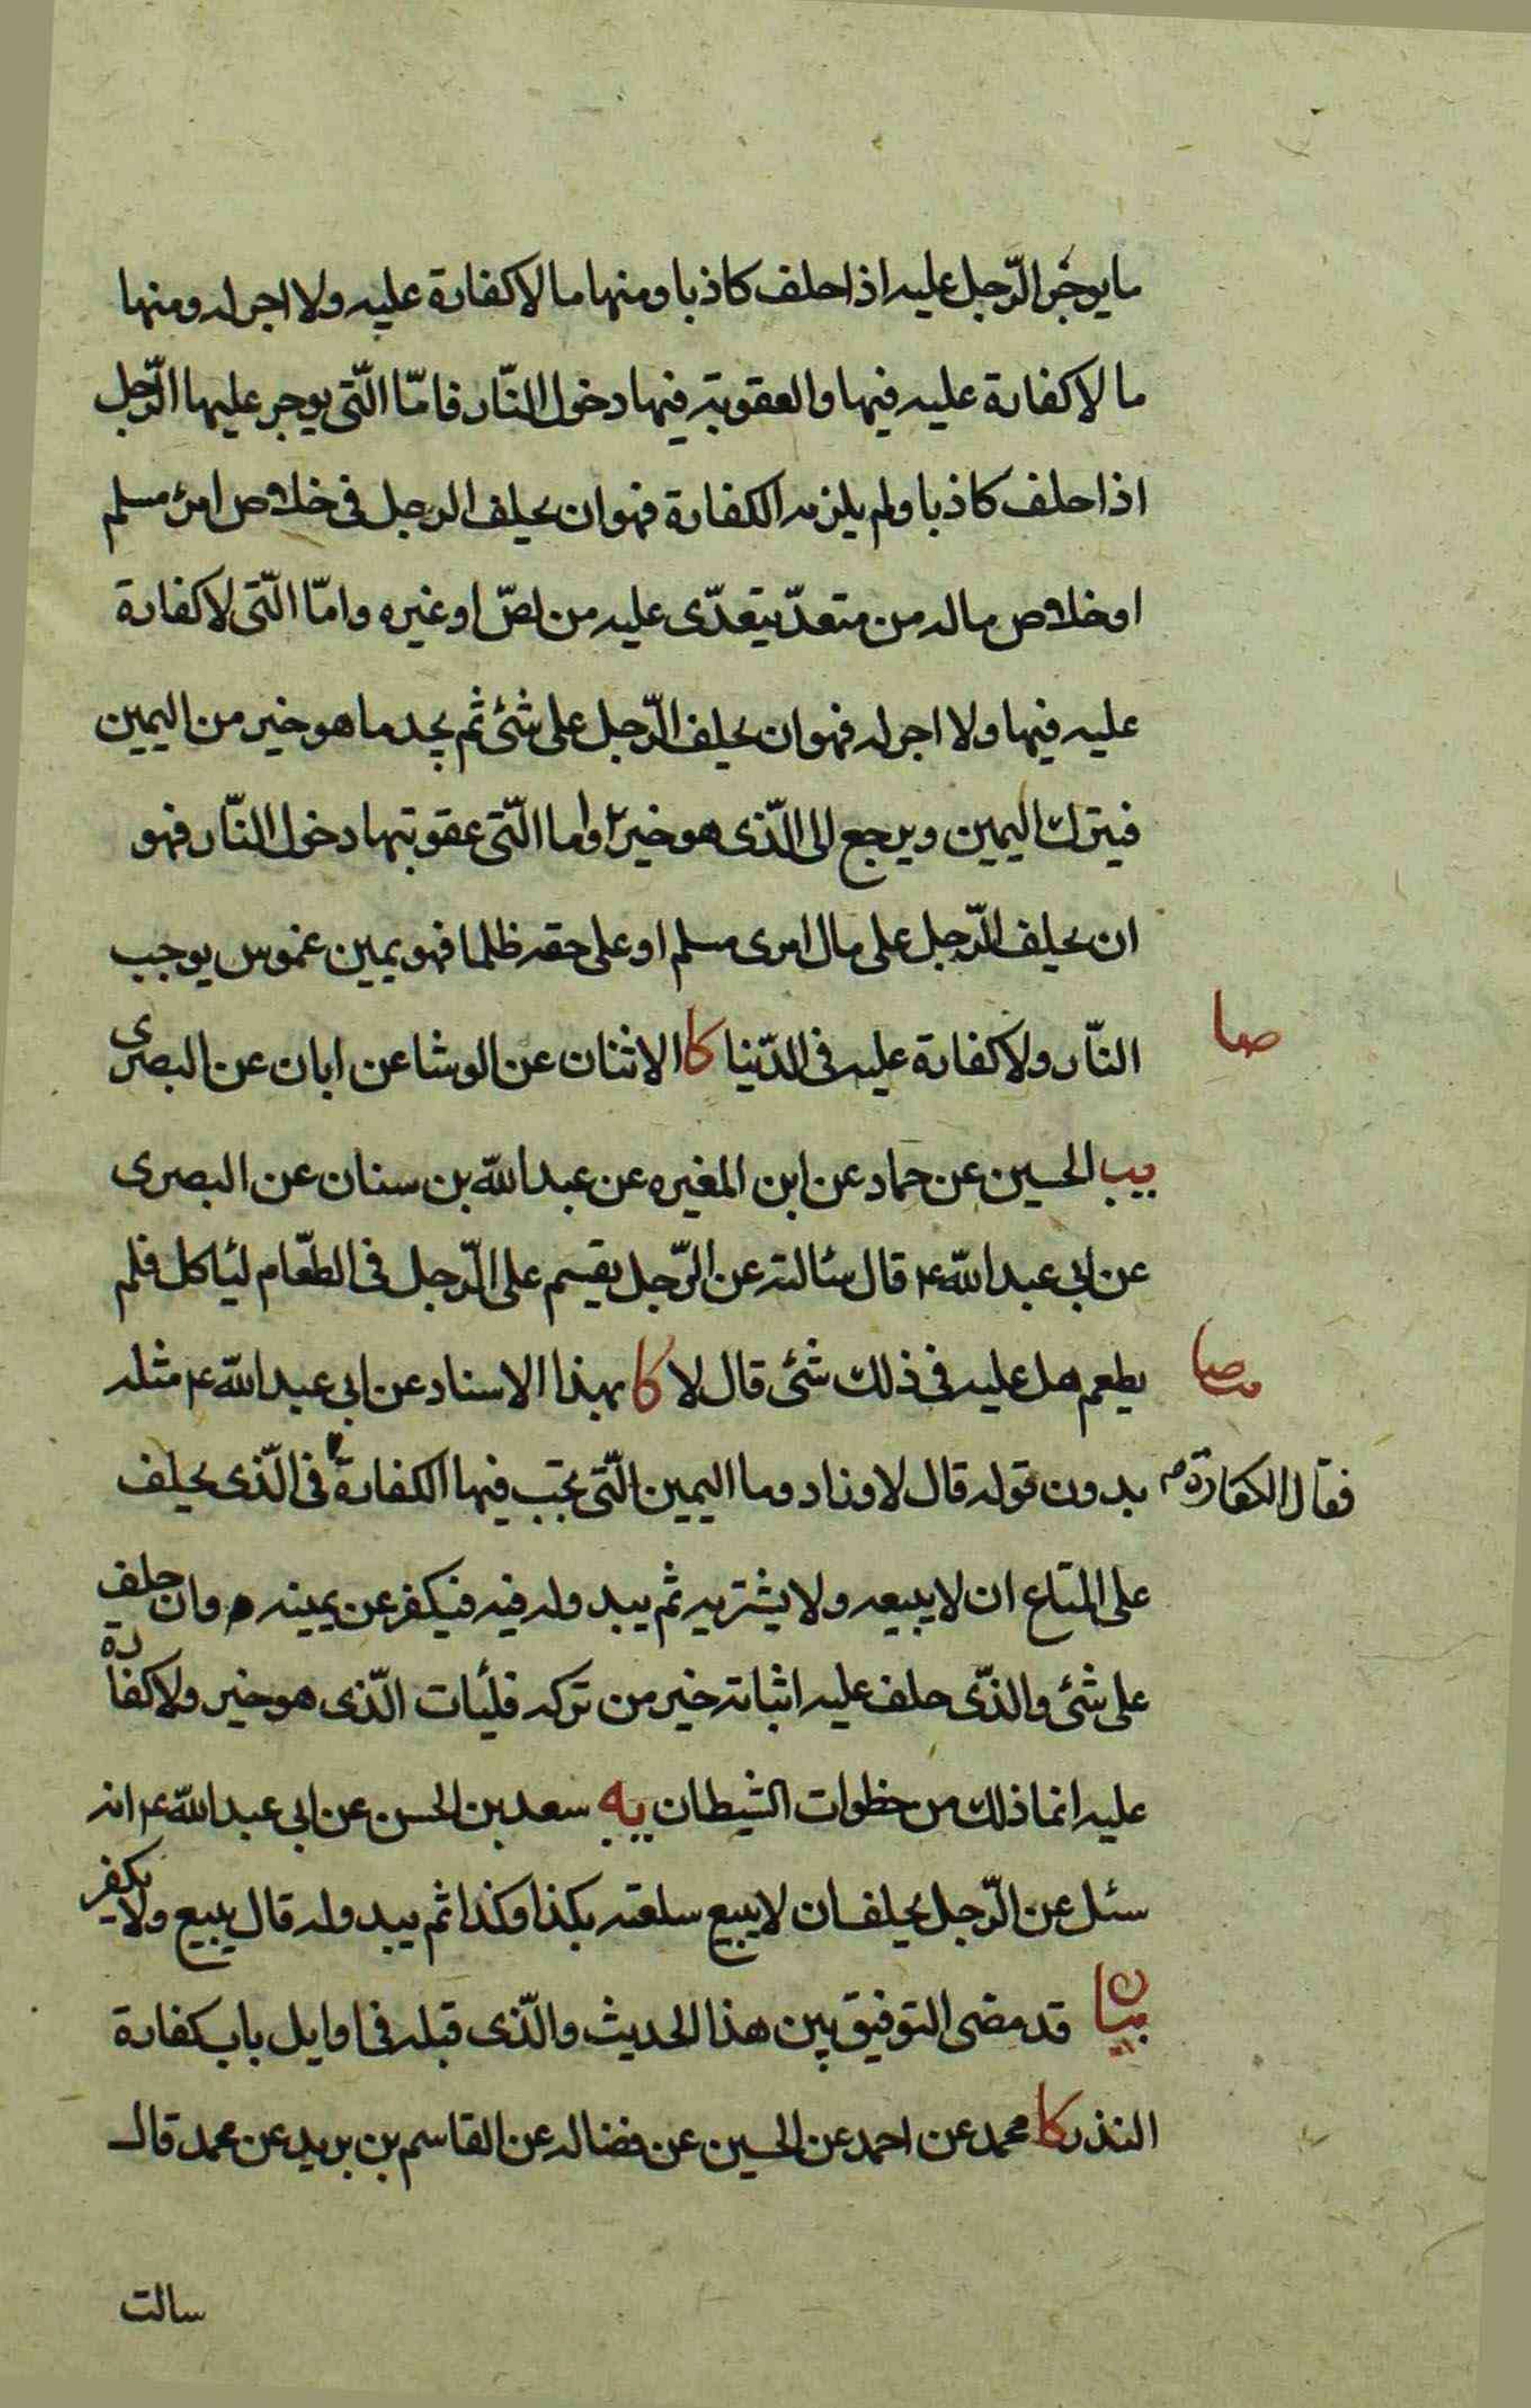 ما يوجر الرّجل عليه اذا حلف كاذبا ومنها ما لا كفارة عليه ولا اجر له ومنها
ما لا كفارة عليه فيها والعقوبة فيها دخول النّار فامّا الّتى يوجر عليها الرّجل
اذا حلف كاذبا ولم يلزمه الكفارة فهو ان يحلف الرجل فى خلاص امرئ مسلم
او خلاص ماله من متعدّ يتعدّى عليه من لصّ او غيره وامّا الّتى لا كفارة
عليه فيها ولا اجر له فهو ان يحلف الرّجل على شئ ثم يجد ما هو خير من اليمين
فيترك اليمين ويرجع الى الّذى هو خير واما الّتى عقوبتها دخول النّار فهو
ان يحلف الرّجل على مال امرى مسلم او على حقه ظلما فهو يمين غموس يوجب
النّار ولا كفارة عليه فى الدّنيا كا الاثنان عن الوشا عن ابان عن البصرى
صا
يب الحسين عن حماد عن ابن المغيره عن عبد الله بن سنان عن البصرى
عن ابى عبد الله ع قال سئالته عن الرّجل يقسم على الرّجل فى الطّعام ليئاكل فلم
يطعم هل عليه فى ذلك شئ قال لا كا بهذا الاسناد عن ابى عبد الله ع مثله
صا
بدون قوله قال لا وزاد وما اليمين الّتى تجب فيها الكفارة فى الّذى يحلف
فقال الكفارة
على المتاع ان لا يبيعه ولا يشتريه ثم يبدو له فيه فيكفر عن يمينه وان حلف
على شئ والذّى حلف عليه اثباته خير من تركه فليأت الّذى هو خير ولا كفارة
عليه انما ذلك من خطوات الشيطان يه سعد بن الحسن عن ابى عبد الله ع انه
سئل عن الرّجل يحلف ان لا يبيع سلعته بكذا وكذا ثم يبدو له قال يبيع ولا يكفر
بيان قد مضى التوفيق بين هذا الحديث والّذى قبله فى اوايل باب كفارة
النذر كا محمد عن احمد عن الحسين عن فضاله عن القاسم بن بريد عن محمد قال
سالت